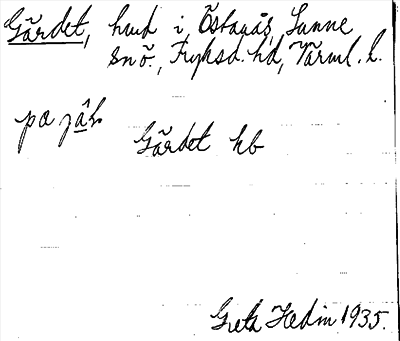 Gärdet, hmd i Östanås, Sunne
snö., Fryksd. hd, Värml. l.
på jä̂ḷ.
Gärdet hb
Greta Hedin 1935.